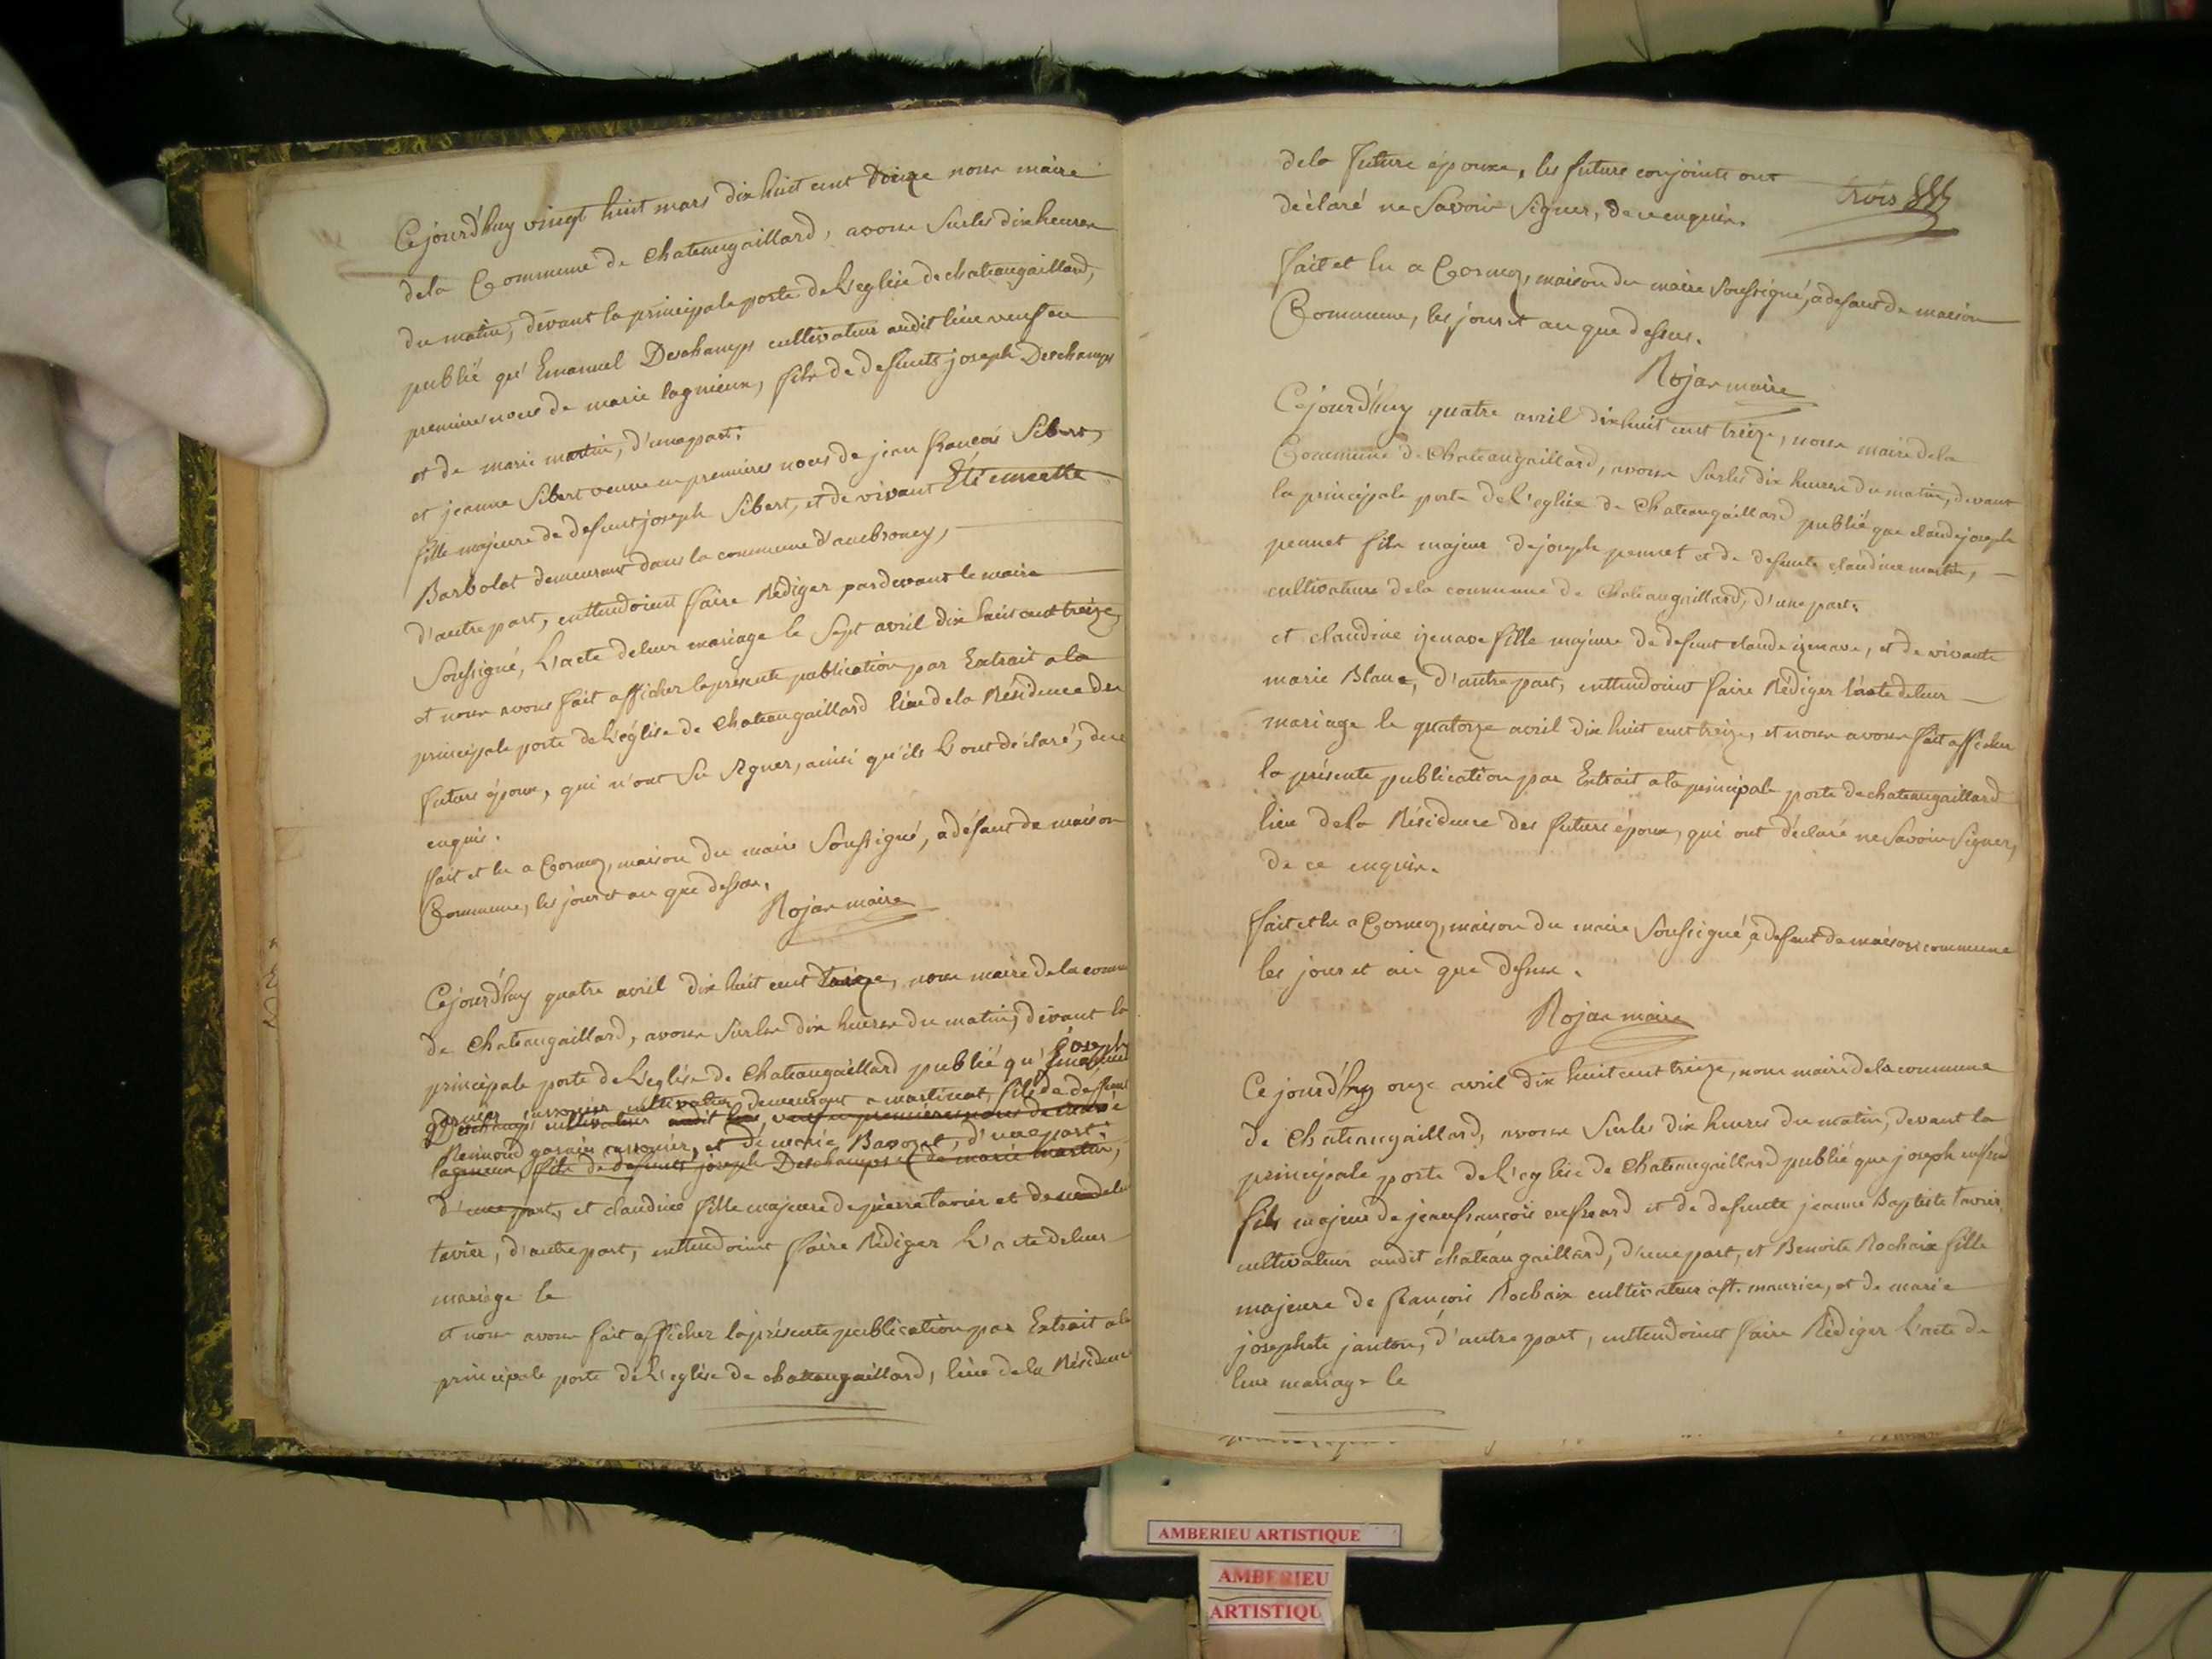 Cejourd'huy vingt huit mars dix huit cent treize nous maire
dela Commune de Chateaugaillard, avons Surles dix heures
du matin, devant la principale porte de L'eglise de chateaugaillard,
publié qu'Emanuel Deschamps cultivateur audit lieu veuf en
premieres noces de marie lagnieux, fils de defunts joseph Deschamps
et de marie martin, d'une part:
et jeanne Sibert veuve en premieres noces de jean françois Sibert,
fille majeure de defunt joseph Sibert, et de vivant Etiennette
Barbolat demeurant dans la commune d'ambroney,
d'autre part, enttendoient faire Rediger pardevant le maire
Soussigné, L'acte deleur mariage le Sept avril dix huit cent treize,
et nous avons fait afficher la presente publication par Extrait a la
principale porte de L'église de chateaugaillard lieu dela Résidence des
futurs époux, qui n'ont Su Signer, ainsi qu'ils L'ont déclaré, de ce
enquis.
fait et lu a Cormoz, maison du maire Soussigné, a défaut de maison
Commune, les jour et an que dessus.
Rojas maire
Cejourd'huy quatre avril dix huit cent treize, nous maire de la comm
de Chateaugaillard, avons Surles dix heures du matin, devant la
joseph
principale porte de L'eglise de Chateaugaillard publié qu'Emanuel
cultivateur demeurant a martinat, fils de defunt
Deschamps cultivateur audit lieu, veuf en premieres noces de marie
Reimond et de marie d'une part:
lagnieux, fils de defunts joseph Deschamps et de marie martin,
d'une part, et claudine fille majeure de pierre tavier et de
tavier, d'autre part, enttendoient faire Rédiger L'acte deleur
mariage le
et nous avons fait afficher la présente publication par Extrait a la
principale porte de L'eglise de chateaugaillard, lieu dela Résidence
trois
dela future épouse, les futurs conjoints ont
déclaré ne Savoir Signer, de ce enquis.
fait et lu a Cormoz, maison du maire Soussigné, a defaut de maison
Commune, les jour et an que dessus.
Rojas maire
Cejourd'huy quatre avril dix huit cent treize, nous maire dela
Commune de Chateaugaillard, avons Surles dix heures du matin, devant
la principale porte de L'eglise de Chateaugaillard publié que claude joseph
pennet fils majeur de joseph pennet et de defunte claudine martin,
cultivateurs dela commune de Chateaugaillard, d'une part:
et claudine izenave fille majeure de defunt claude izenave, et de vivante
marie Blanc, d'autre part, enttendoient faire Rédiger l'acte deleur
mariage le quatorze avril dix huit cent treize, et nous avons fait afficher
la présente publication par Extrait a la principale porte de chateaugaillard
lieu dela Résidence des futurs époux, qui ont déclaré ne Savoir Signer,
de ce enquis.
fait et lu a Cormoz, maison du maire Soussigné, a defaut de maison commune
les jour et an que dessus.
Rojas maire
Ce jourd'huy onze avril dix huit cent treize, nous maire dela commune
de Chateaugaillard, avons Surles dix heures du matin, devant la
principale porte de L'eglise de Chateaugaillard publié que joseph
fils majeur de jean françois et de defunte jeanne Baptiste tavier,
cultivateur audit chateaugaillard, d'une part, et Benoite Rochaix fille
majeure de françois Rochaix cultivateur a St. maurice, et de marie
josephete janton, d'autre part, enttendoient faire Rédiger L'acte de
leur mariage le
AMBERIEU ARTISTIQUE
AMBERIEU
ARTISTIQU